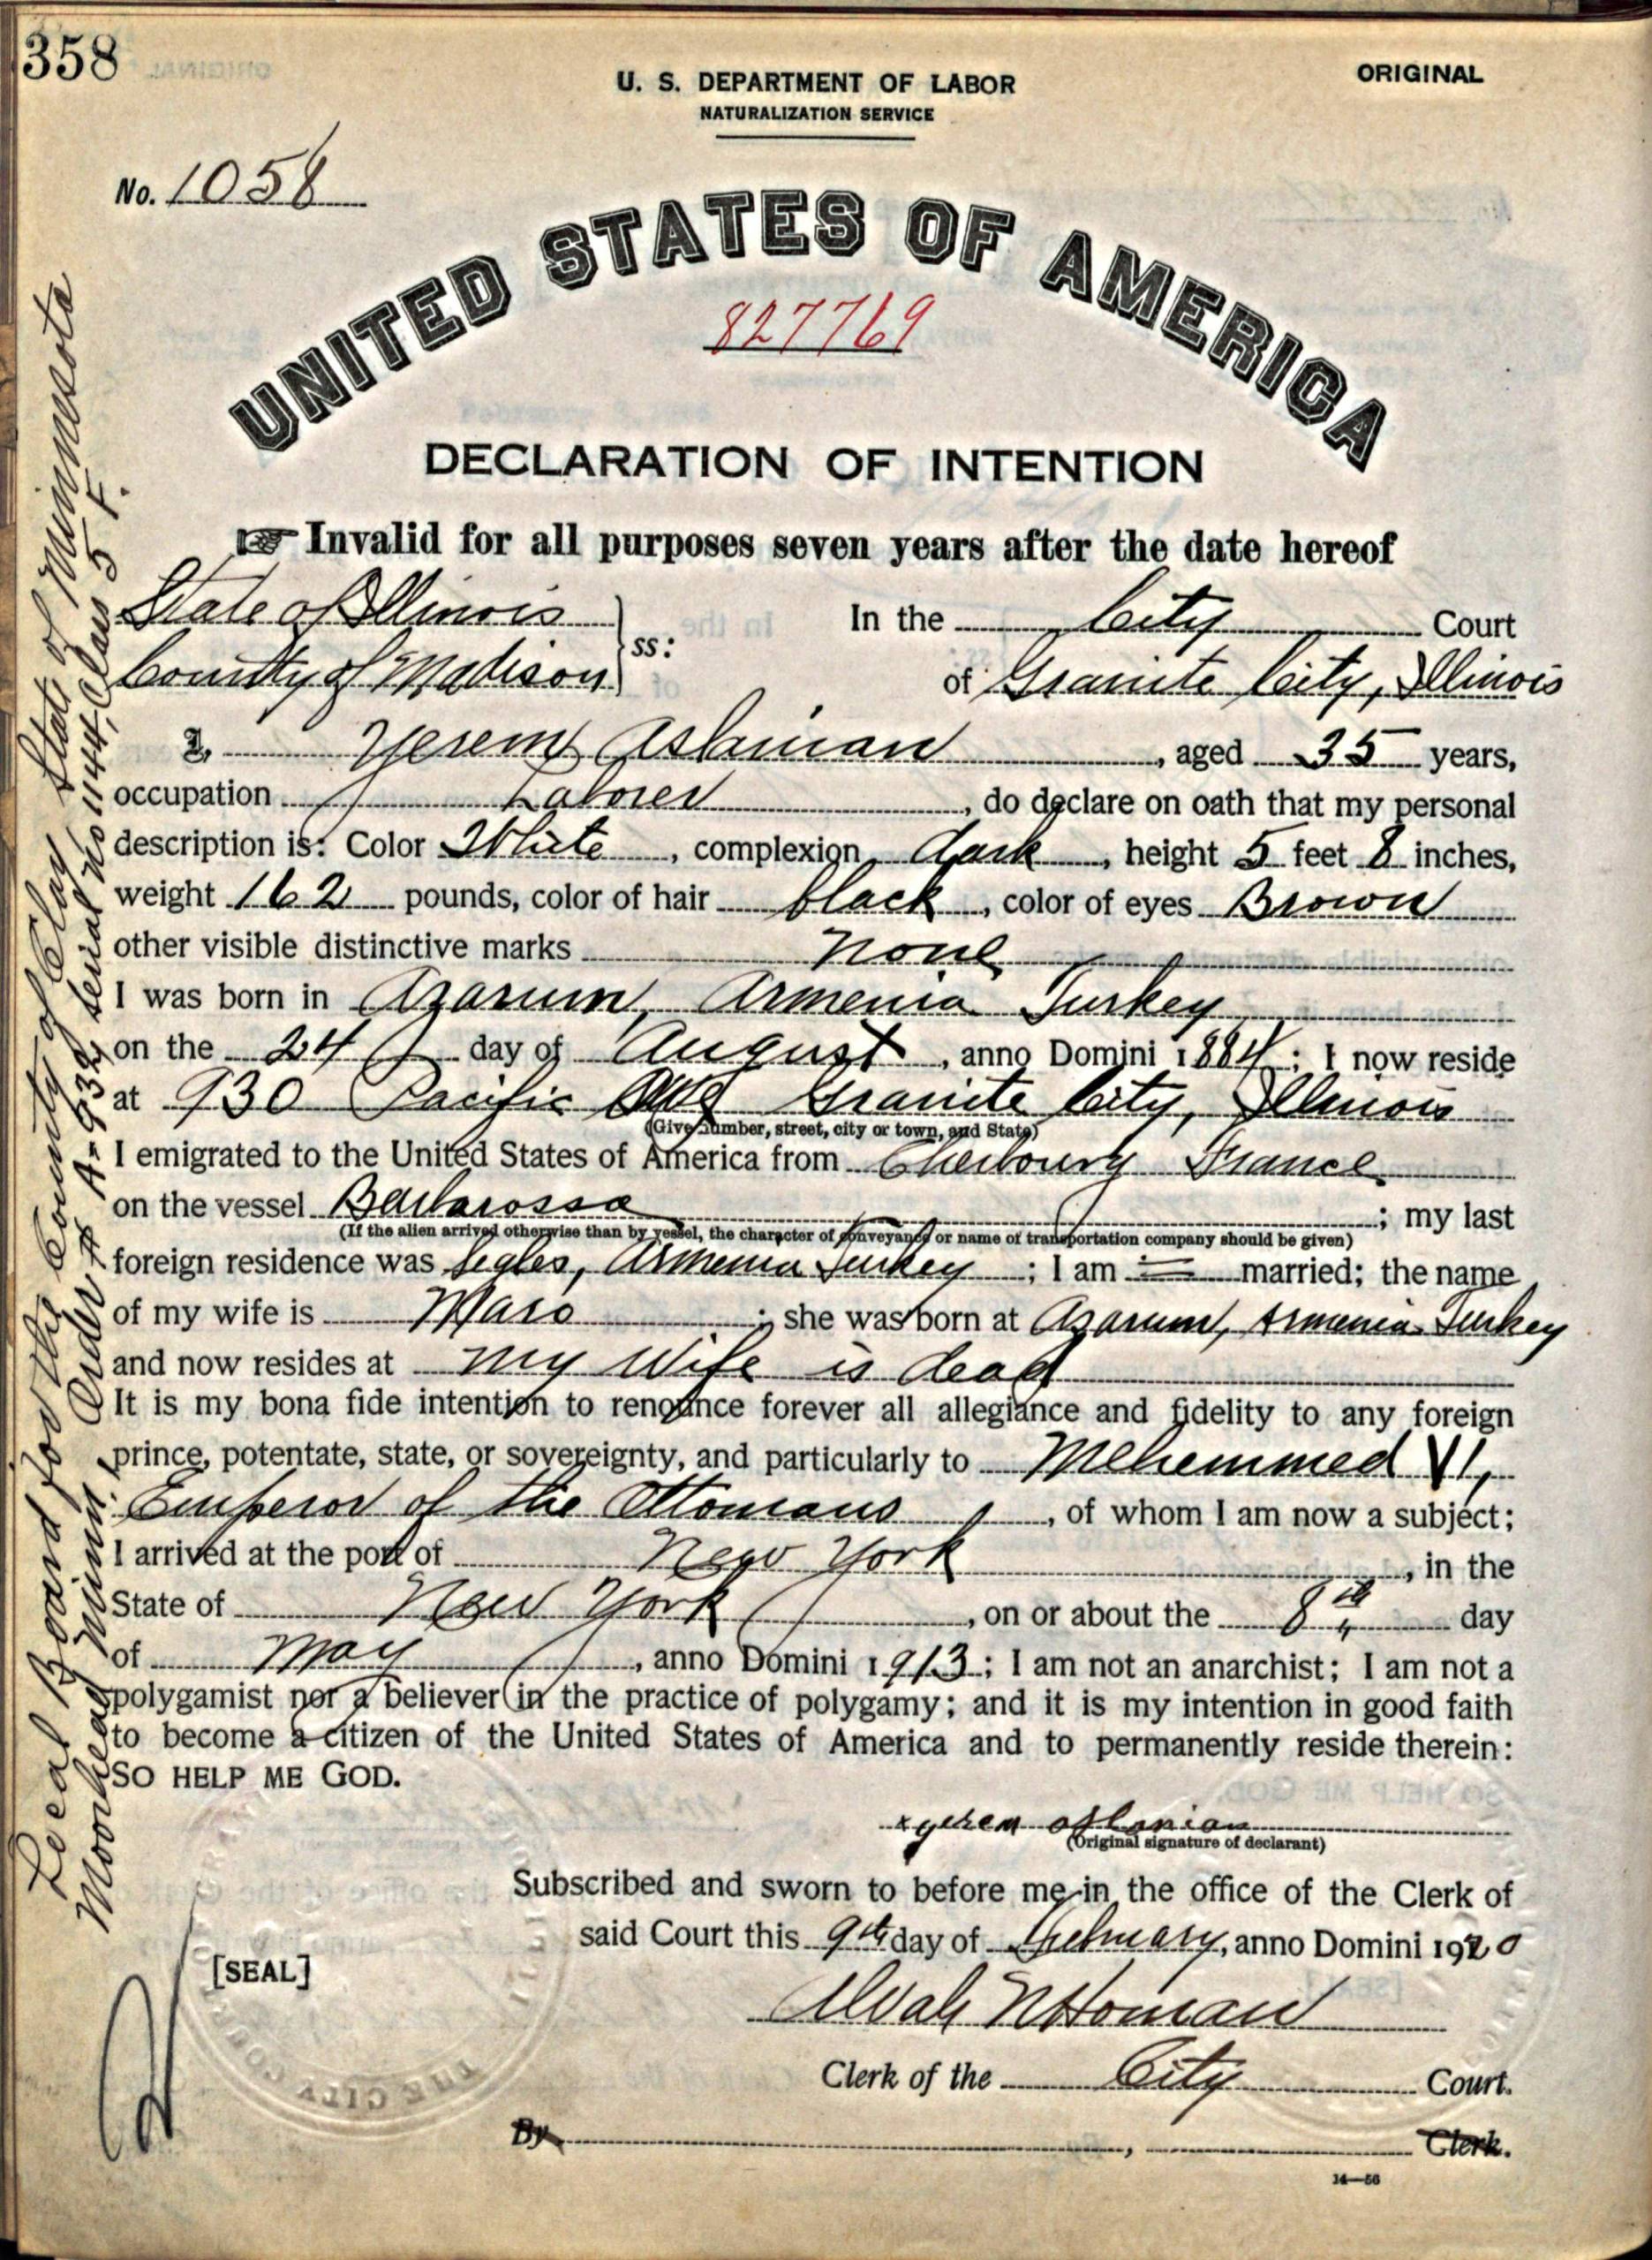 358
U. S. DEPARTMENT OF LABOR
NATURALIZATION SERVICE
ORIGINAL
No. 1058
UNITED STATES OF AMERICA
827769
DECLARATION OF INTENTION
☞ Invalid for all purposes seven years after the date hereof
State of Illinois
County of Madison
ss:
In the City Court
of Granite City, Illinois
I, Yerem Aslanian, aged 35 years,
occupation Laborer, do declare on oath that my personal
description is: Color White, complexion dark, height 5 feet 8 inches,
weight 162 pounds, color of hair black, color of eyes Brown
other visible distinctive marks none
I was born in Azarum, Armenia Turkey
on the 24 day of August, anno Domini 1884; I now reside
at 930 Pacific Ave Granite City, Illinois
(Give number, street, city or town, and State)
I emigrated to the United States of America from Cherbourg France
on the vessel Barbarossa; my last
(If the alien arrived otherwise than by vessel, the character of conveyance or name of transportation company should be given)
foreign residence was Segles, Armenia Turkey; I am = married; the name
of my wife is Maro; she was born at Azarum, Armenia Turkey
and now resides at my wife is dead
It is my bona fide intention to renounce forever all allegiance and fidelity to any foreign
prince, potentate, state, or sovereignty, and particularly to Mehemmed VI,
Emperor of the Ottomans, of whom I am now a subject;
I arrived at the port of New York, in the
State of New York, on or about the 8th day
of May, anno Domini 1913; I am not an anarchist; I am not a
polygamist nor a believer in the practice of polygamy; and it is my intention in good faith
to become a citizen of the United States of America and to permanently reside therein:
SO HELP ME GOD.
x yerem aslanian
(Original signature of declarant)
Subscribed and sworn to before me in the office of the Clerk of
said Court this 9th day of February, anno Domini 1920
[SEAL]
Alvah N Homan
Clerk of the City Court.
By , Clerk.
14—56
Local Board for the County of Clay State of Minnesota
Moorhead, Minn. Order # A-932 Serial No 1144, Class 5 F.
THE CITY COURT